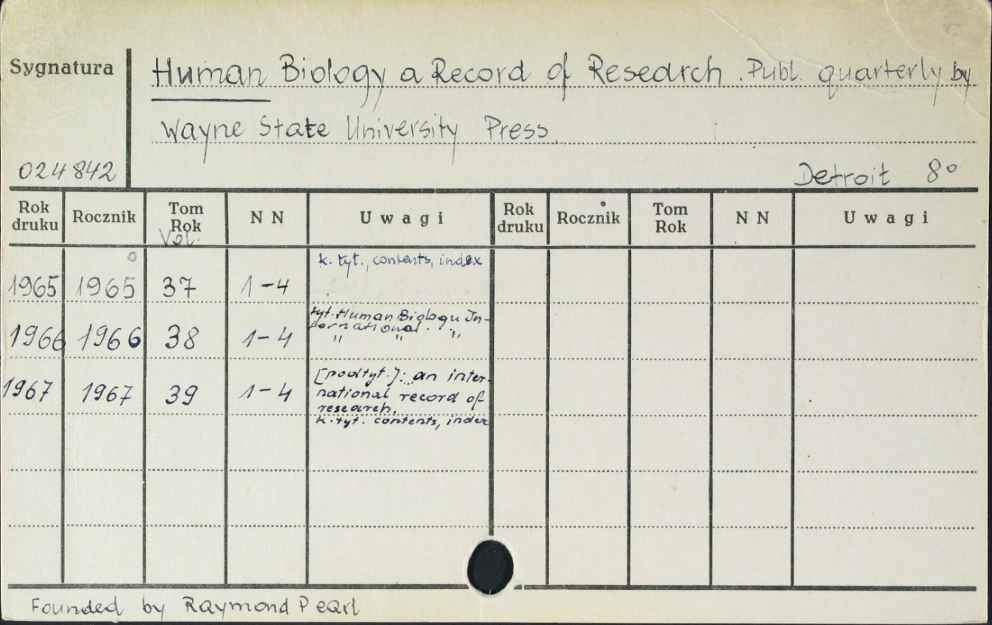 Sygnatura
Human Biology a Record of Research. Publ. quarterly by
Wayne State University Press.
024842
Detroit 8°
Rok druku Rocznik Tom Rok N N Uwagi Rok druku Rocznik Tom Rok N N Uwagi
Vol.
k. tyt., contents, index
1965 1965 37 1-4
tyt. Human Biology In-
ternational.
1966 1966 38 1-4 " " "
[podtyt.]: an inter-
1967 1967 39 1-4 national record of
research.
k. tyt. contents, index
Founded by Raymond Pearl